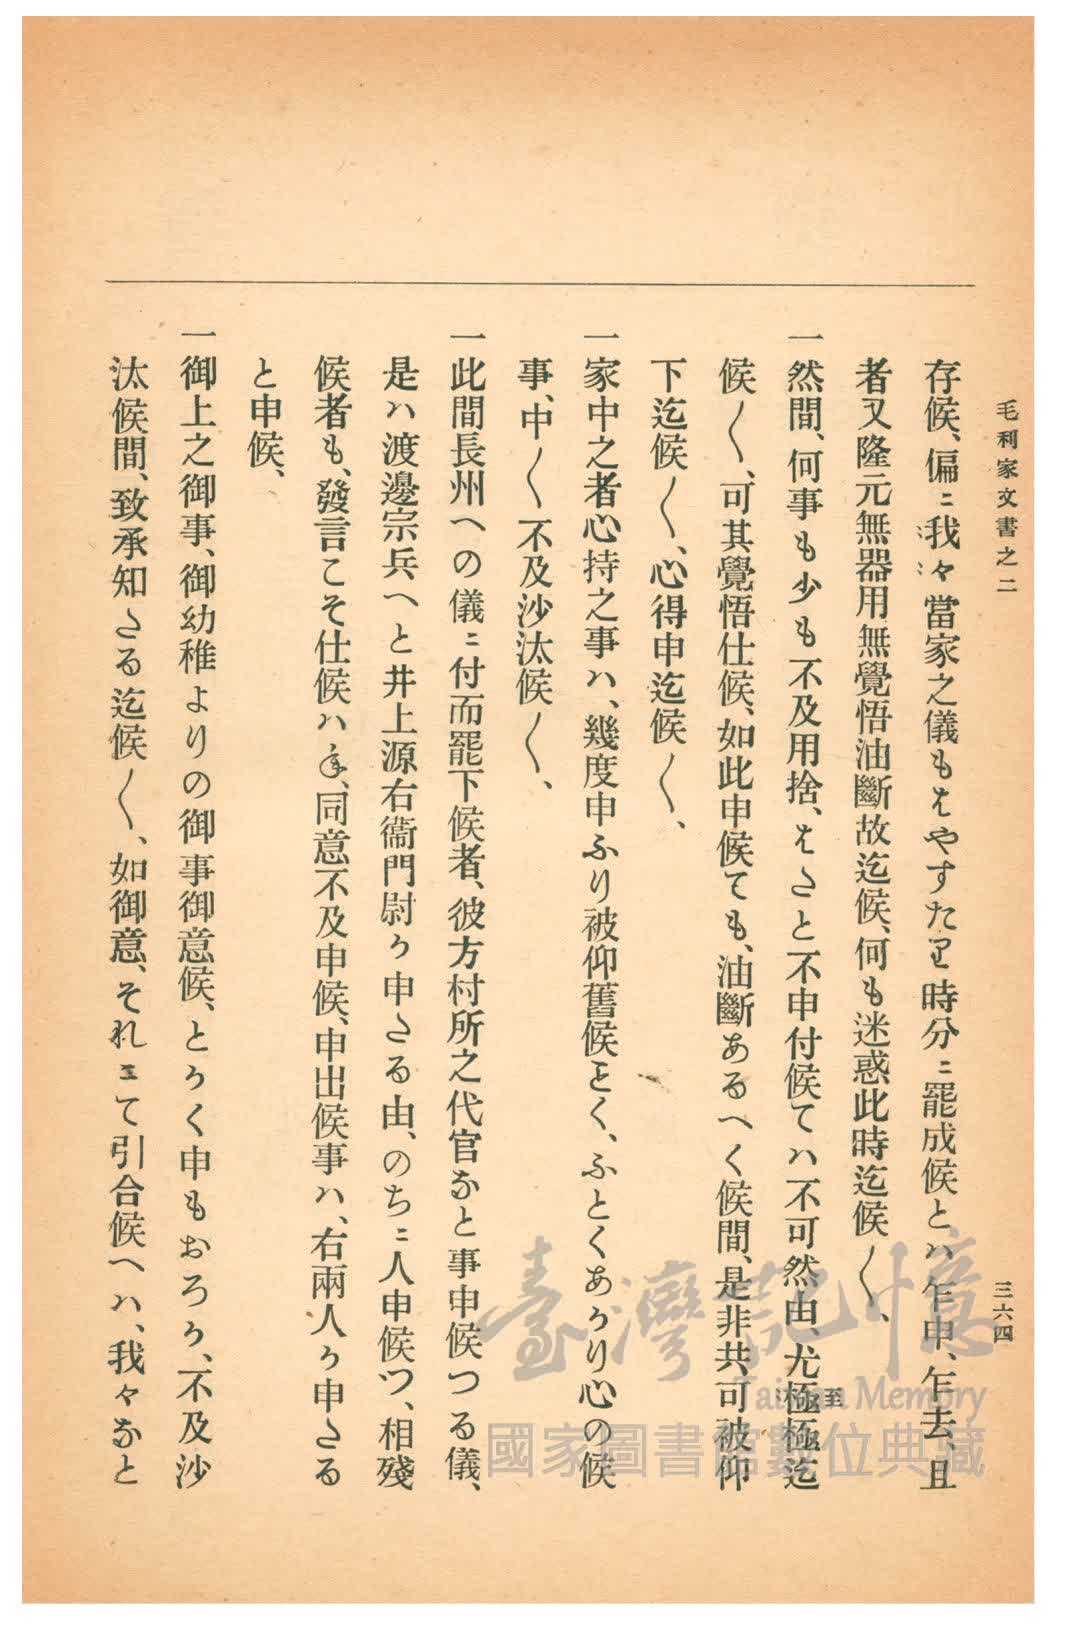 毛利家文書之二
三六四
存候、偏ニ我々當家之儀もはやすたり時分ニ罷成候とハ乍申、乍去、且
者又隆元無器用無覺悟油斷故迄候、何も迷惑此時迄候〱、
一然間、何事も少も不及用捨、はたと不申付候てハ不可然由、尤極極迄
至
候〱、可其覺悟仕候、如此申候ても、油斷あるへく候間、是非共可被仰
下迄候〱、心得申迄候〱、
一家中之者心持之事ハ、幾度申ふり被仰舊候とく、ふとくあかり心の候
事、中〱不及沙汰候〱、
一此間長州への儀ニ付而罷下候者、彼方村所之代官なと事申候つる儀、
是ハ渡邊宗兵へと井上源右衞門尉か申たる由、のちニ人申候つ、相殘
候者も、發言こそ仕候ハね、同意不及申候、申出候事ハ、右兩人か申たる
と申候、
一御上之御事、御幼稚よりの御事御意候、とかく申もおろか、不及沙
汰候間、致承知たる迄候〱、如御意、それニて引合候へハ、我々なと
臺灣記憶
Taiwan Memory
國家圖書館數位典藏